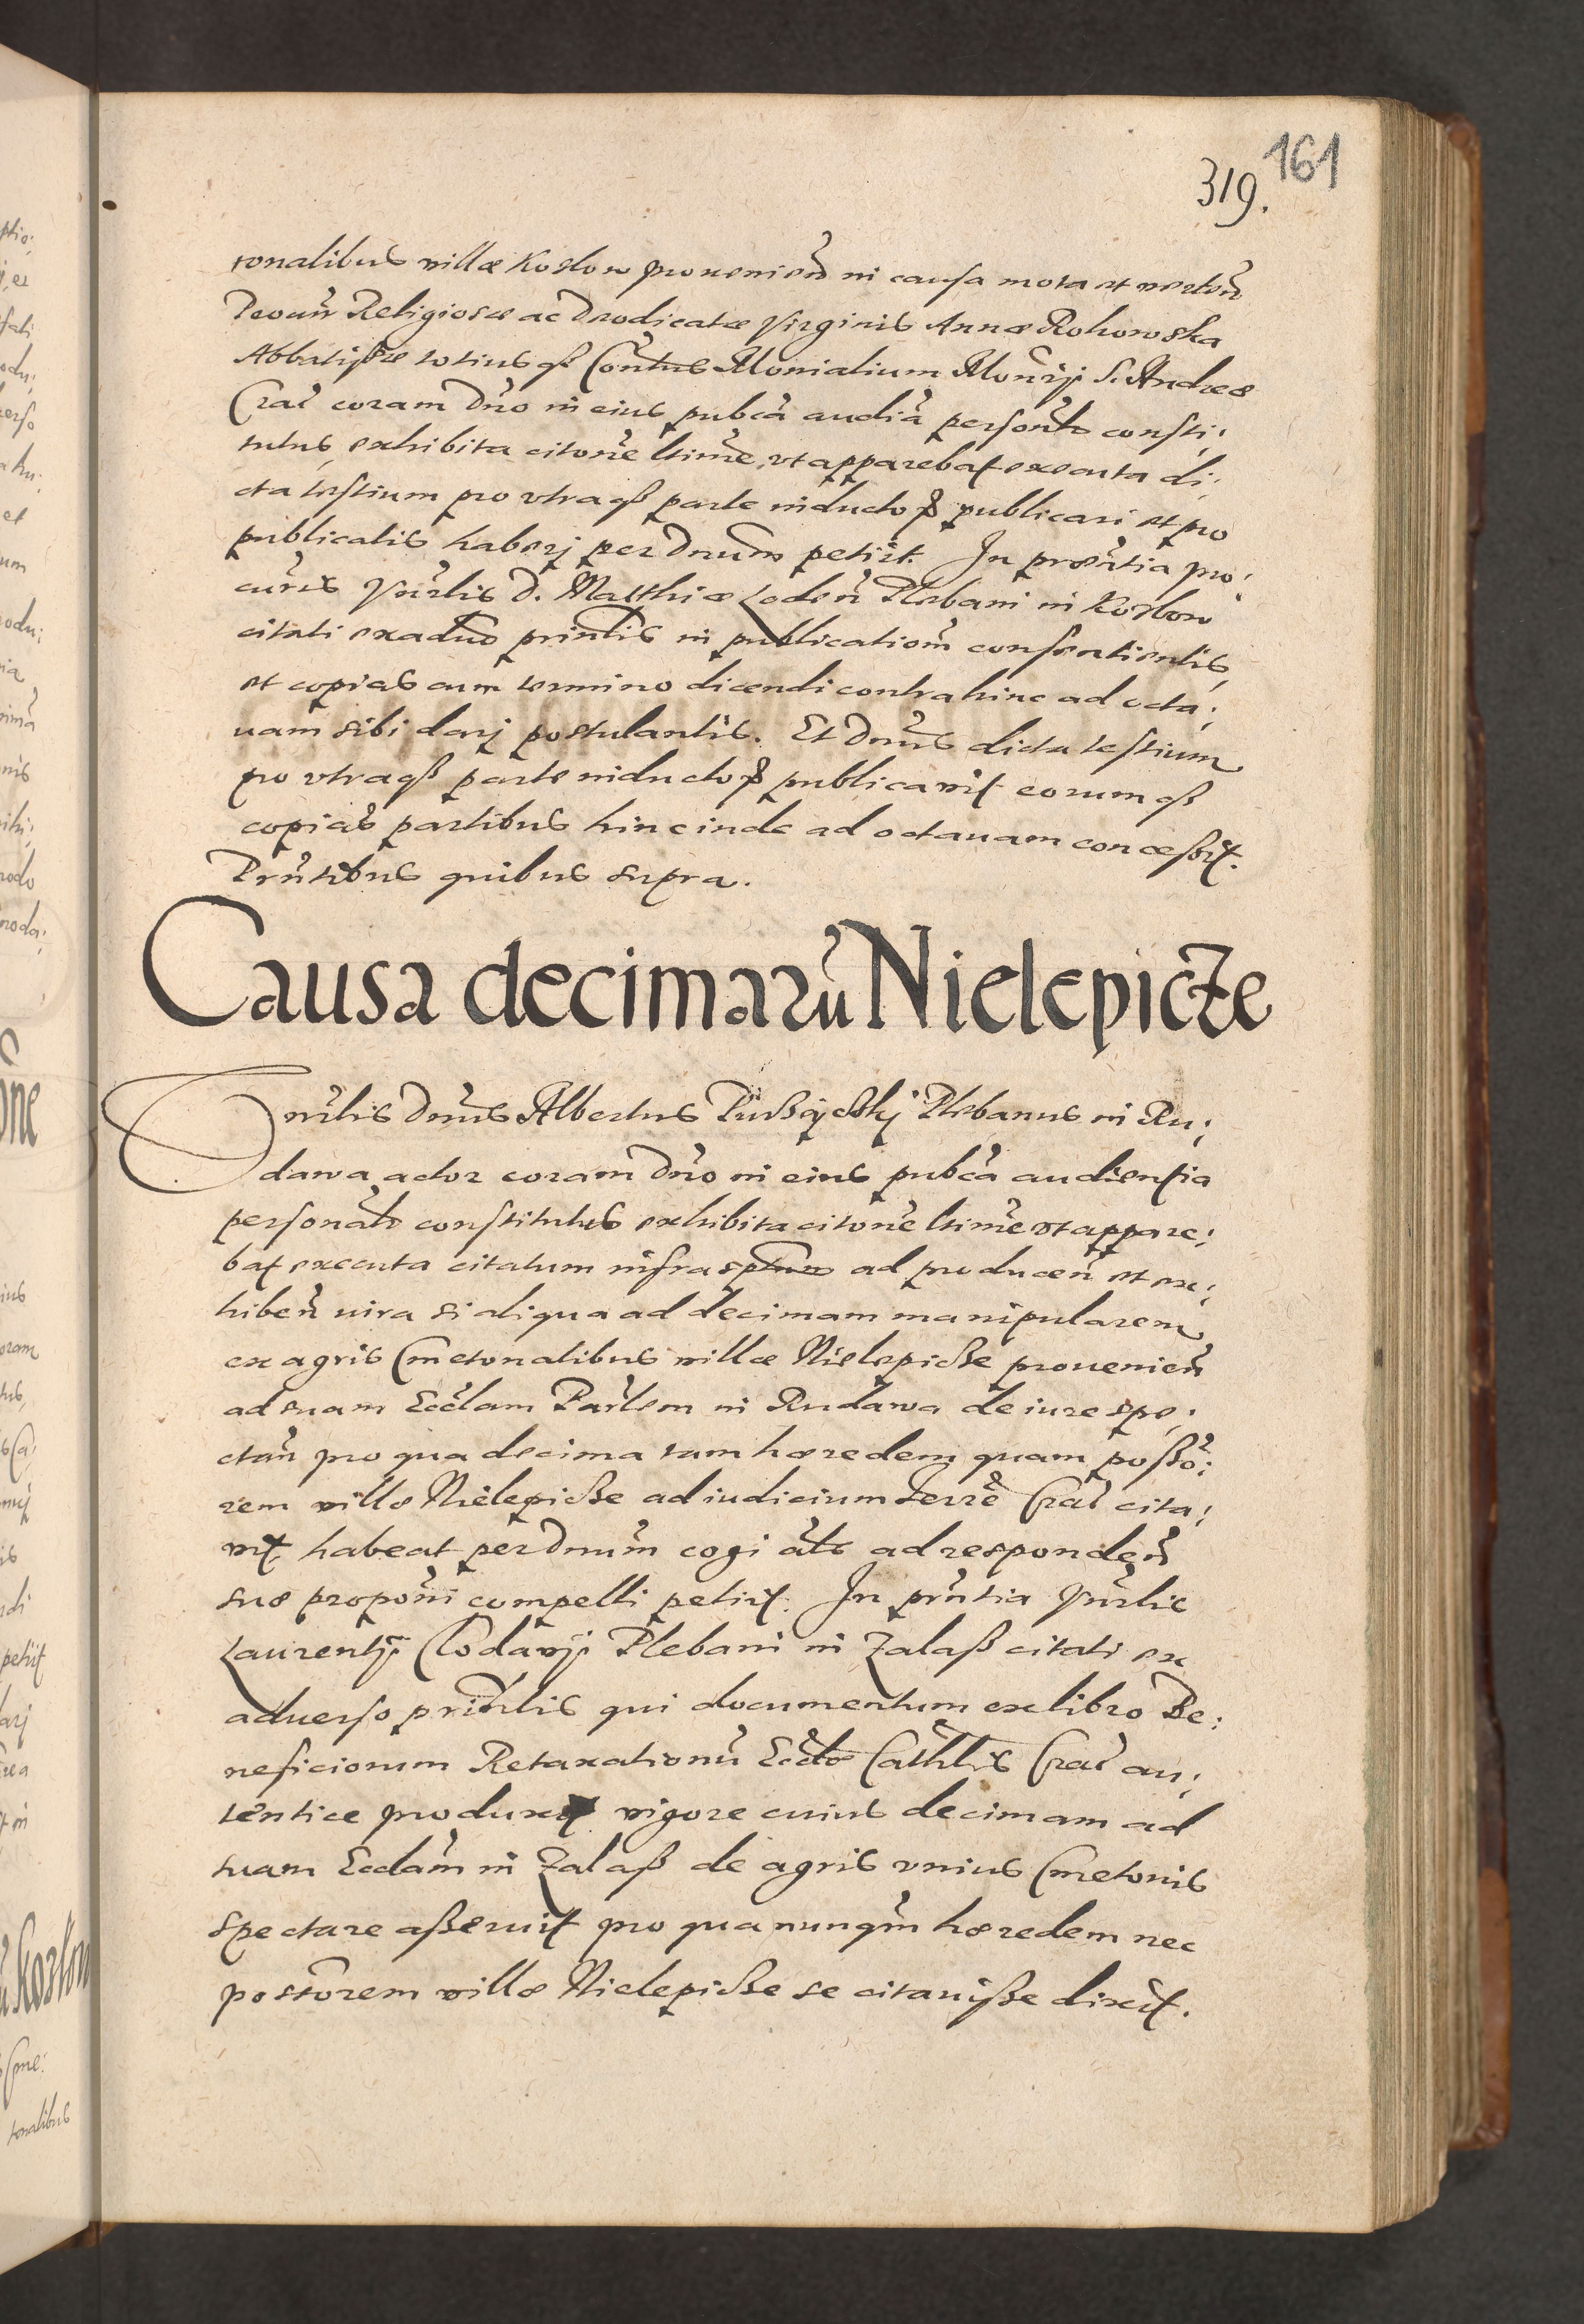 161
319.
tonalibus villæ Kozlow prouenieñ in causa mota et verteñ
Deoũr Religiosæ ac Deodicatæ Virginis Annæ Rohowska
Abbatissæ totiusqȝ Contus Monialium Monrij S. Andreæ
Crac coram Dno in eius pubca audia personlr consti;
tutus, exhibita citone ltime, vt apparebat executa di;
cta testium pro vtraqȝ parte inductoꝝ publicari et pro
publicatis haberj per Dnum petijt. In præsntia pro;
curis Vnrlis D. Matthiæ Plebani in Kozlow
citati exaduo prinlis in publicationem consentientis,
et copias cum termino dicendi contra hinc ad octa;
uam sibi darj postulantis. Et Dnus dicta testium
pro vtraqȝ parte inductoꝝ publicauit eorumqȝ
copias partibus hinc inde ad octauam concessit.
Prntibus quibus supra.
Causa decimarũ Nielepicze
Vnrlis Dnus Albertus Plebanus in Ru;
dawa actor coram Dno in eius pubca audientia
personalr constitutus exhibita citone ltime vt appare;
bat executa citatum infrasptum ad producen et ex;
hiben iura si aliqua ad decimam manipularem
ex agris Cmetonalibus villæ Nielepicze prouenien
ad suam Ecclam Parlem in Rudawa de iure spe;
ctan pro qua decima tam hæredem quam posso;
rem villæ Nielepicze ad iudicium terre Crac cita;
uit habeat per Dnum cogi als ad responden
suæ proponi compelli petijt. In prntia Vnrlis
Laurentij Clodawij Plebani in Zalaß citati ex
aduerso prinlis qui documentum ex libro Be;
neficiorum Retaxationũ Ecclæ Cathlis Crac au;
tentice produxit vigore cuius decimam ad
suam Ecclam in Zalaß de agris vnius Cmetonis
spectare asseruit pro qua nunqm hæredem nec
possorem villæ Nielepicze se citauisse dixit.